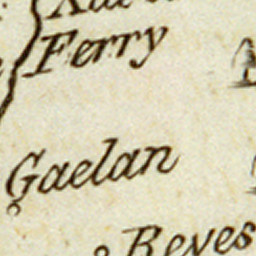 Ferry
Gaelan
Reyes